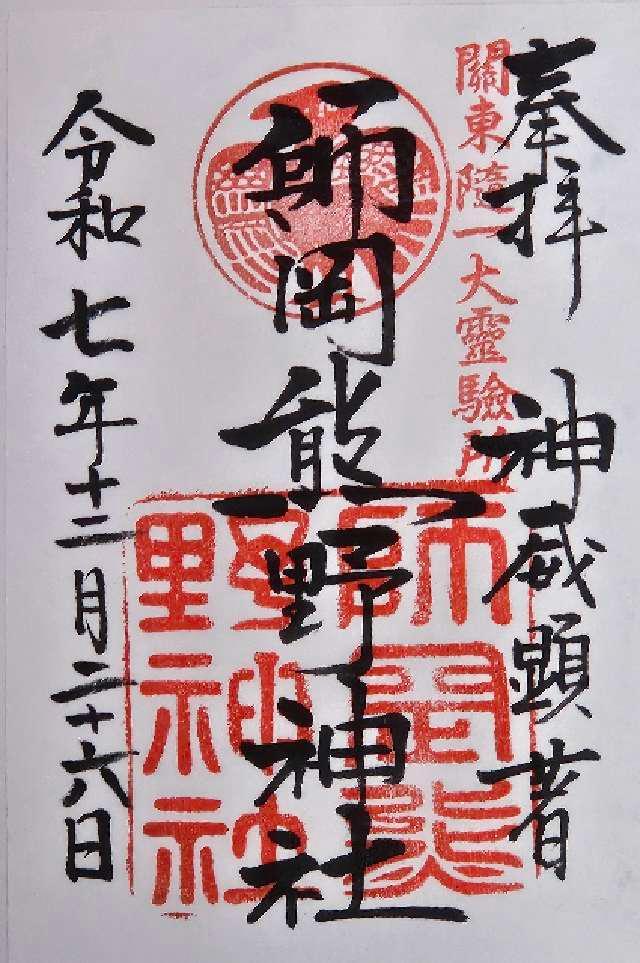 奉拝 神威顕著
關東隨一大靈驗所
師岡熊野神社
令和七年十二月二十六日
師岡熊
野神社